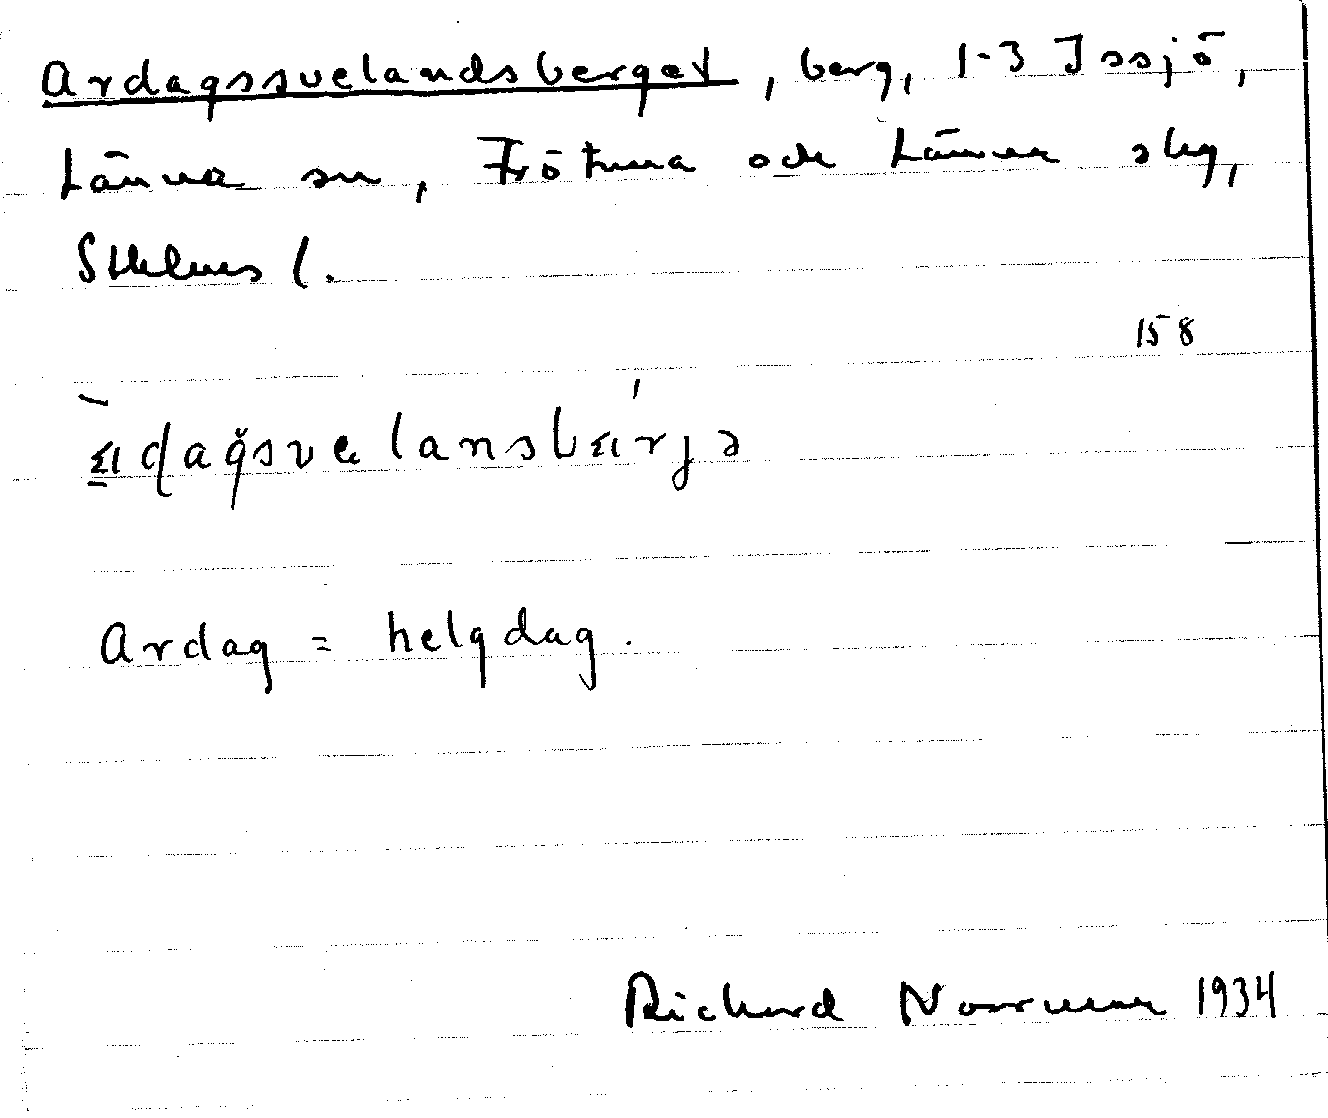 Ardagssvelandsberget, berg, 1-3 Issjö,
Länna sn, Frötuna och Länna skg,
Sthlms l.
158
Ardag = helgdag.
Richard Norrman 1934